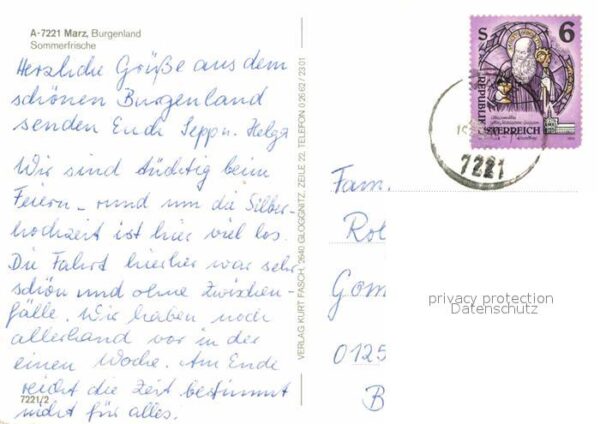 A-7221 Marz, Burgenland
Sommerfrische
Herzliche Grüße aus dem
schönen Burgenland
senden Euch Sepp u. Helga
Wir sind tüchtig beim
Feiern - rund um die Silber-
hochzeit ist hier viel los.
Die Fahrt hierher war sehr
schön und ohne Zwischen-
fälle. Wir haben noch
allerhand vor in der
einen Woche. Am Ende
reicht die Zeit bestimmt
nicht für alles.
7221/2
VERLAG KURT FASCH, 2640 GLOGGNITZ, ZEILE 22, TELEFON 0 26 62 / 23 01
S 6
REPUBLIK
ÖSTERREICH
7221
Fam.
Rol
Gom
0125
B
privacy protection
Datenschutz